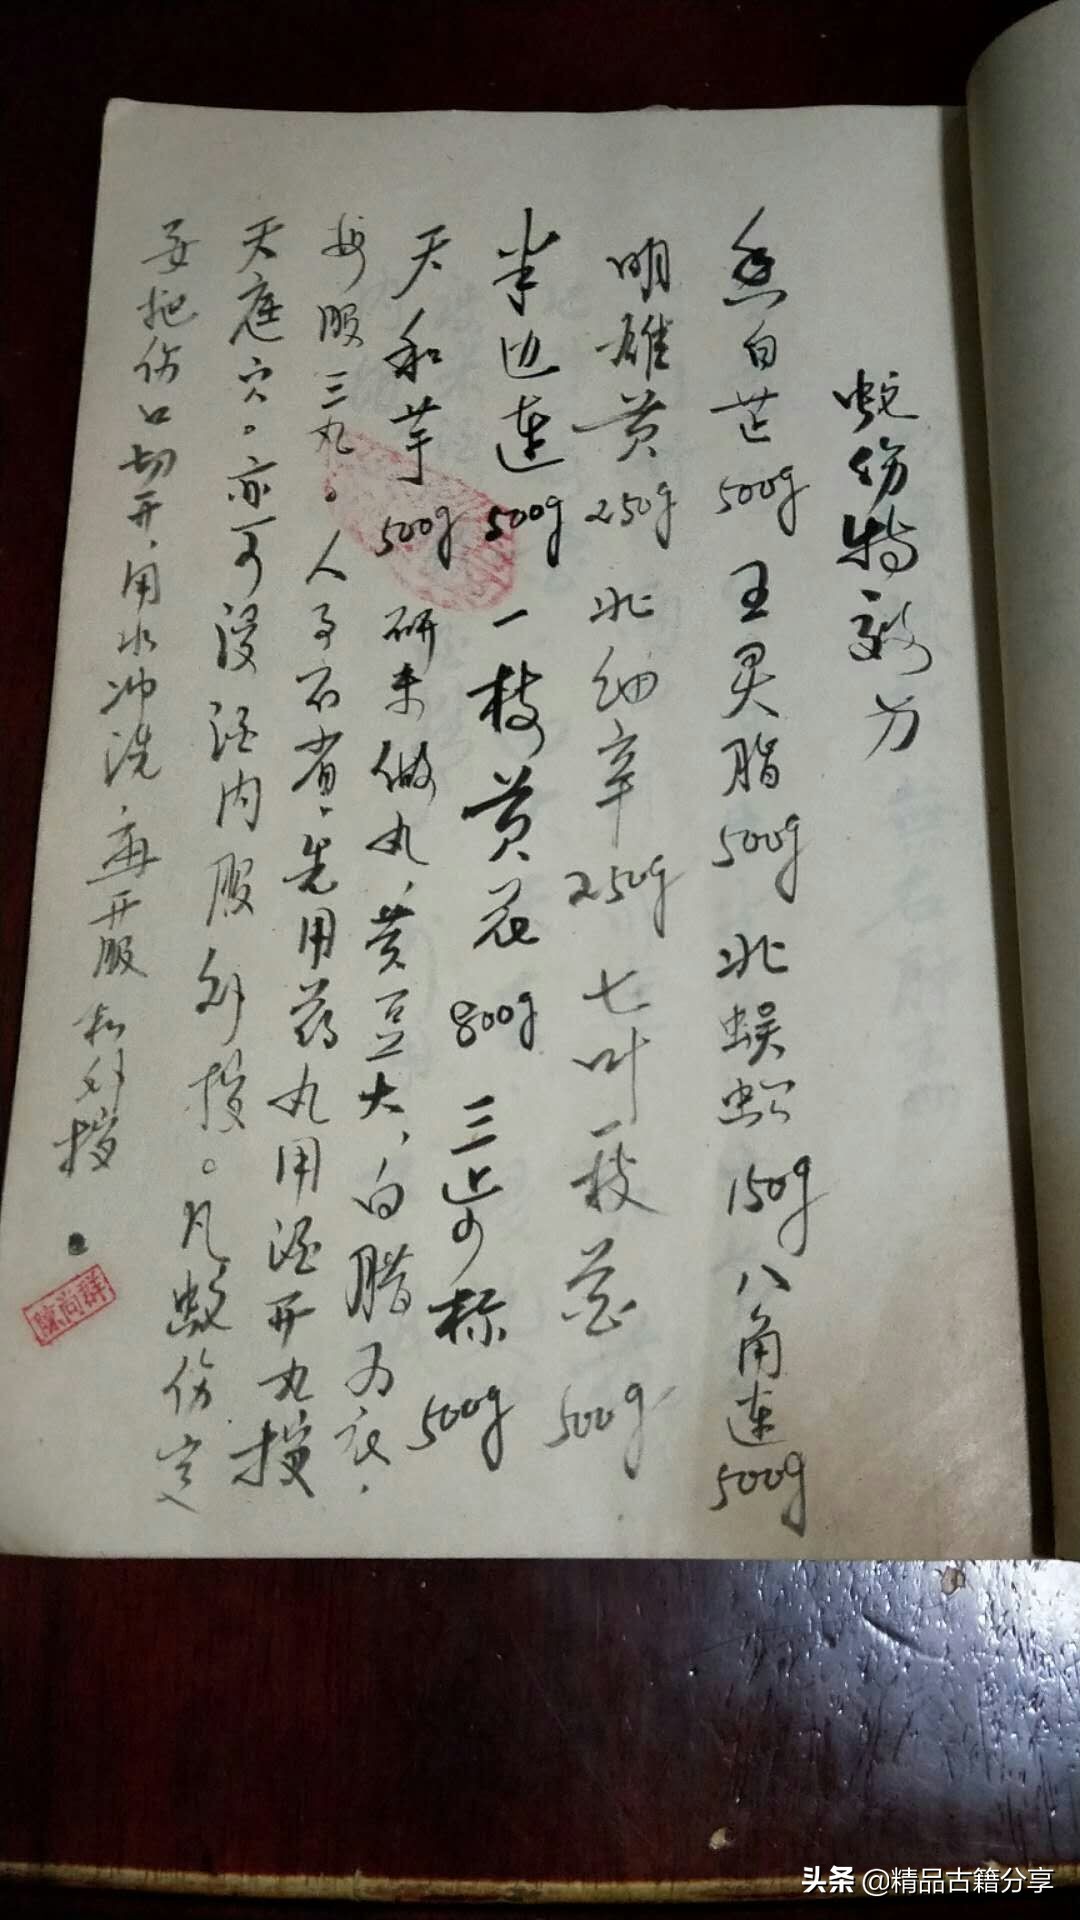 蛇伤特效方
香白芷500g 王灵脂500g 北蜈蚣150g 八角连500g
明雄黄250g 北细辛250g 七叶一枝花500g
半边连500g 一枝黄花800g 三步标500g
天和芋500g 研末做丸，黄豆大，白腊为衣，
每服三丸。人事不省，先用药丸用酒开丸搽
天庭穴。亦可浸酒内服外搽。凡蛇伤定
要把伤口切开，用水冲洗，再开服和外搽
陳尚群
头条 @精品古籍分享